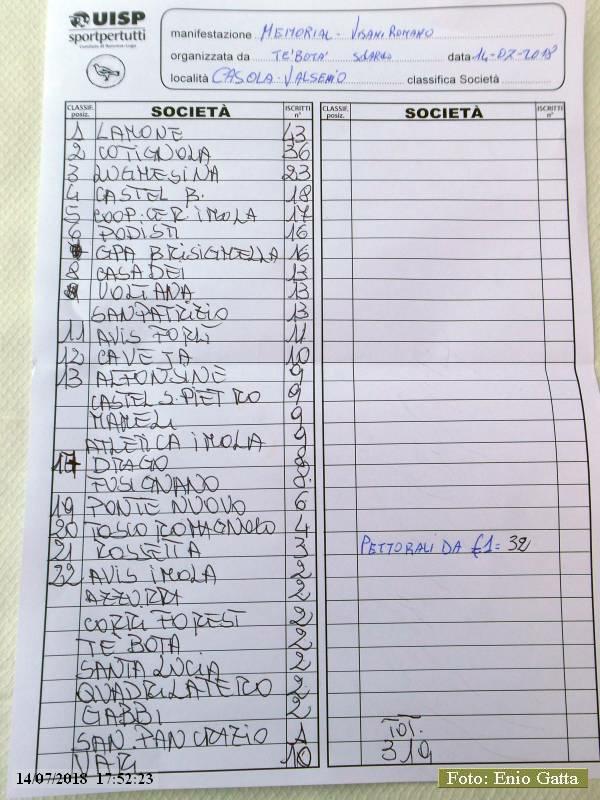 UISP
sportpertutti
manifestazione MEMORIAL - VISANI ROMANO
organizzata da TE' BOTA' data 14-07-2018
località CASOLA-VALSENIO classifica Società
CLASSIF. posiz. SOCIETÀ ISCRITTI n° CLASSIF. posiz. SOCIETÀ ISCRITTI n°
1 LAMONE 43
2 COTIGNOLA 36
3 LUGHESINA 23
4 CASTEL B. 18
5 COOP. CER. IMOLA 17
6 PODISTI 16
GPA BRISIGHELLA 16
8 CASADEI 13
VOLTANA 13
SANPATRIZIO 13
11 AVIS FORLÌ 11
12 CAVEJA 10
13 ALFONSINE 9
CASTEL S. PIETRO 9
MAMELI 9
ATLETICA IMOLA 9
17 DRAGO 8
FUSIGNANO 8
19 PONTE NUOVO 6
20 TOSCO ROMAGNOLO 4
21 ROSSETTA 3
PETTORALI DA €1= 32
22 AVIS IMOLA 2
AZZURRA 2
CORRI FOREST 2
TE BOTA 2
SANTA LUCIA 2
QUADRILATERO 2
GABBI 2
SAN. PANCRAZIO 1
VARI 10
TOT.
319
14/07/2018 17:52:23
Foto: Enio Gatta